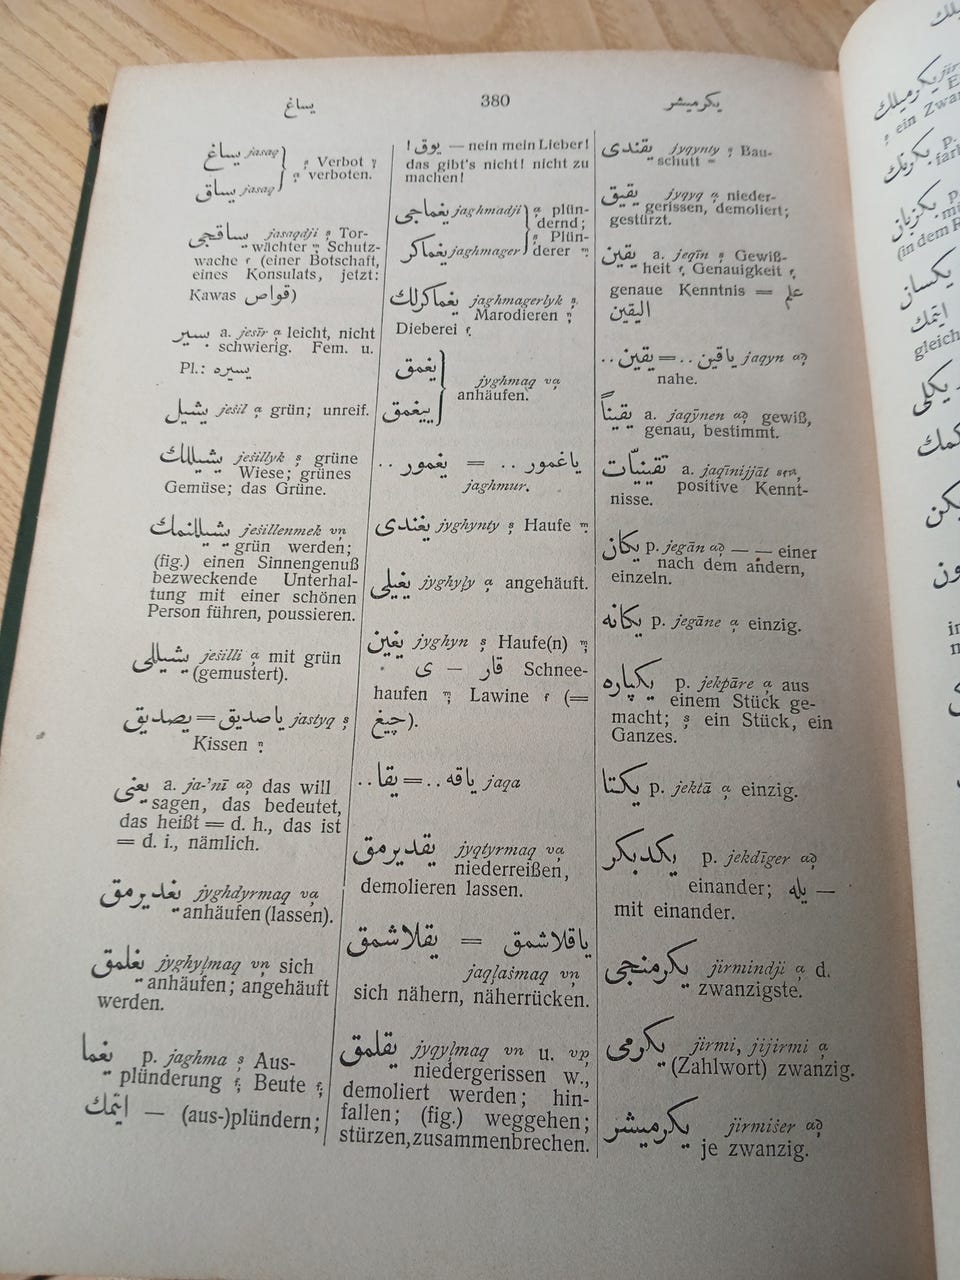 يساغ 380 يكرميشر
يساغ jasaq
يساق jasaq
s Verbot n
a verboten.
يساقجى jasaqdji s Tor-
wächter m Schutz-
wache f (einer Botschaft,
eines Konsulats, jetzt:
Kawas قواص)
يسير a. jesīr a leicht, nicht
schwierig. Fem. u.
Pl.: يسيره
يشيل ješil a grün; unreif.
يشيللك ješillyk s grüne
Wiese; grünes
Gemüse; das Grüne.
يشيللنمك ješillenmek vn
grün werden;
(fig.) einen Sinnengenuß
bezweckende Unterhal-
tung mit einer schönen
Person führen, poussieren.
يشيللى ješilli a mit grün
(gemustert).
يصديق = ياصديق jastyq s
Kissen n
يعنى a. ja-'nī ad das will
sagen, das bedeutet,
das heißt = d. h., das ist
= d. i., nämlich.
يغديرمق jyghdyrmaq va
anhäufen (lassen).
يغلمق jyghylmaq vn sich
anhäufen; angehäuft
werden.
يغما p. jaghma s Aus-
plünderung f, Beute f;
ايتمك — (aus-)plündern;
! يوق — nein mein Lieber!
das gibt's nicht! nicht zu
machen!
يغماجى jaghmadji
يغماكر jaghmager
a plün-
dernd;
s Plün-
derer m
يغماكرلك jaghmagerlyk s
Marodieren n,
Dieberei f.
يغمق
ييغمق
jyghmaq va
anhäufen.
ياغمور .. = يغمور ..
jaghmur.
يغندى jyghynty s Haufe m
يغيلى jyghyly a angehäuft.
يغين jyghyn s Haufe(n) m;
قار — ى Schnee-
haufen m; Lawine f (=
چيغ).
ياقه .. = يقا .. jaqa
يقديرمق jyqtyrmaq va
niederreißen,
demolieren lassen.
ياقلاشمق = يقلاشمق
jaqlašmaq vn
sich nähern, näherrücken.
يقلمق jyqylmaq vn u. vp
niedergerissen w.,
demoliert werden; hin-
fallen; (fig.) weggehen;
stürzen, zusammenbrechen.
يقندى jyqynty s Bau-
schutt m
يقيق jyqyq a nieder-
gerissen, demoliert;
gestürzt.
يقين a. jeqīn s Gewiß-
heit f, Genauigkeit f,
genaue Kenntnis = علم
اليقين
ياقين .. = يقين .. jaqyn ad
nahe.
يقيناً a. jaqȳnen ad gewiß,
genau, bestimmt.
a. jaqīnijjāt
positive Kennt-
nisse.
يكان p. jegān ad — — einer
nach dem andern,
einzeln.
يكانه p. jegāne a einzig.
يكپاره p. jekpāre a aus
einem Stück ge-
macht; s ein Stück, ein
Ganzes.
يكتا p. jektā a einzig.
يكديكر p. jekdīger ad
einander; يله —
mit einander.
يكرمنجى jirmindji a d.
zwanzigste.
يكرمى jirmi, jijirmi a
(Zahlwort) zwanzig.
يكرميشر jirmišer ad
je zwanzig.